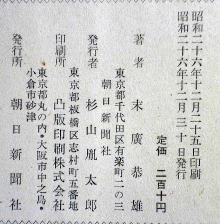 昭和二十六年十二月二十五日印刷
昭和二十六年十二月三十日発行
定価 二百十円
著者 末廣恭雄
東京都千代田区有楽町二の三
朝日新聞社
発行者 杉山胤太郎
東京都板橋区志村町五番地
印刷所 凸版印刷株式会社
東京都丸の内・大阪市中之島・
小倉市砂津
発行所 朝日新聞社